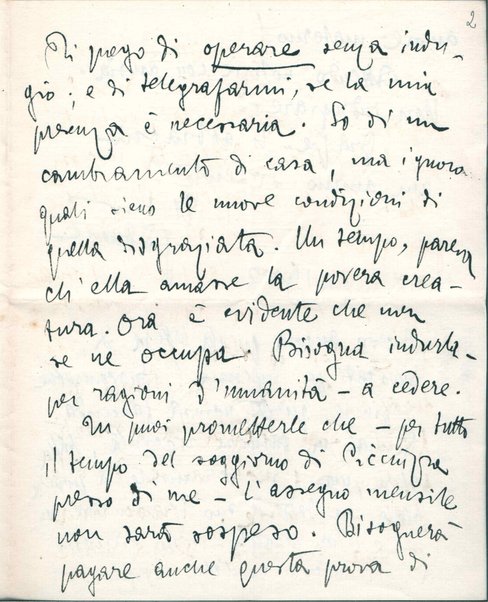 2
Ti prego di operare senza indu-
gio; e di telegrafarmi, se la mia
presenza è necessaria. So di un
cambiamento di casa, ma ignoro
quali sieno le nuove condizioni di
quella disgraziata. Un tempo, pareva
ch'ella amasse la povera crea-
tura. Ora è evidente che non
se ne occupa. Bisogna indurla -
per ragioni d'umanità - a cedere.
Tu puoi prometterle che - per tutto
il tempo del soggiorno di
presso di me - l'assegno mensile
non sarà sospeso. Bisognerà
pagare anche questa prova di